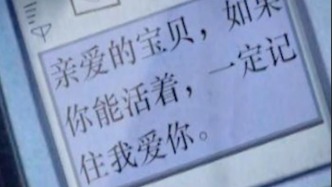 亲爱的宝贝，如果
你能活着，一定记
住我爱你。